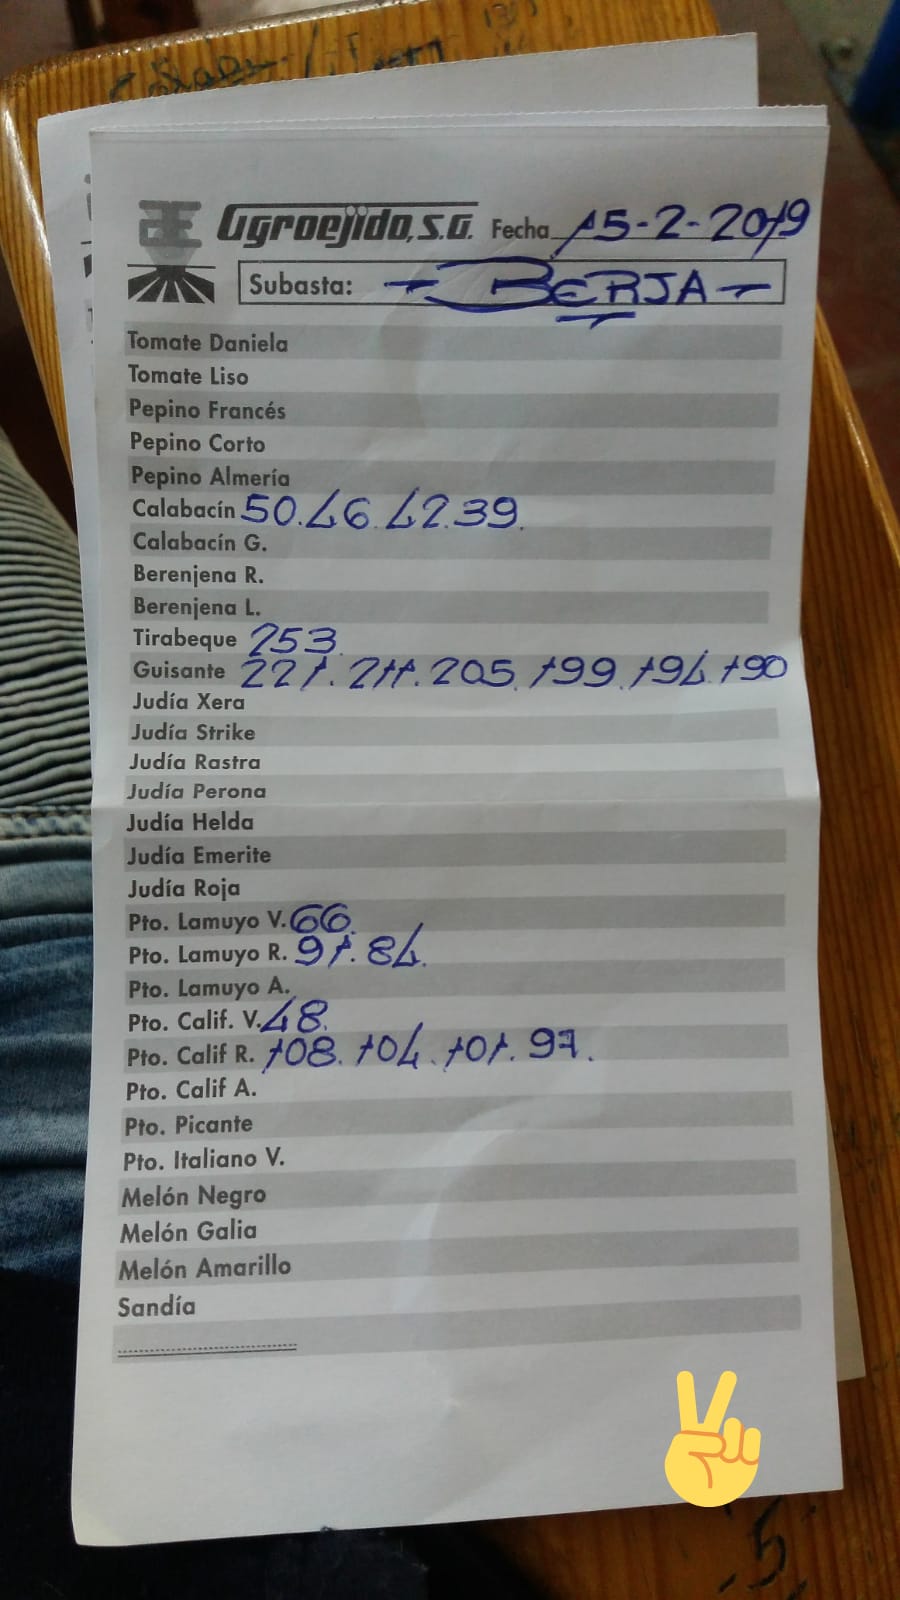 Agroejido, S.A. Fecha 15-2-2019
Subasta: - BERJA -
Tomate Daniela
Tomate Liso
Pepino Francés
Pepino Corto
Pepino Almería
Calabacín 50. 46. 42. 39.
Calabacín G.
Berenjena R.
Berenjena L.
Tirabeque 253.
Guisante 221. 211. 205. 199. 194. 190
Judía Xera
Judía Strike
Judía Rastra
Judía Perona
Judía Helda
Judía Emerite
Judía Roja
Pto. Lamuyo V. 66.
Pto. Lamuyo R. 91. 84.
Pto. Lamuyo A.
Pto. Calif. V. 48.
Pto. Calif R. 108. 104. 101. 97.
Pto. Calif A.
Pto. Picante
Pto. Italiano V.
Melón Negro
Melón Galia
Melón Amarillo
Sandía